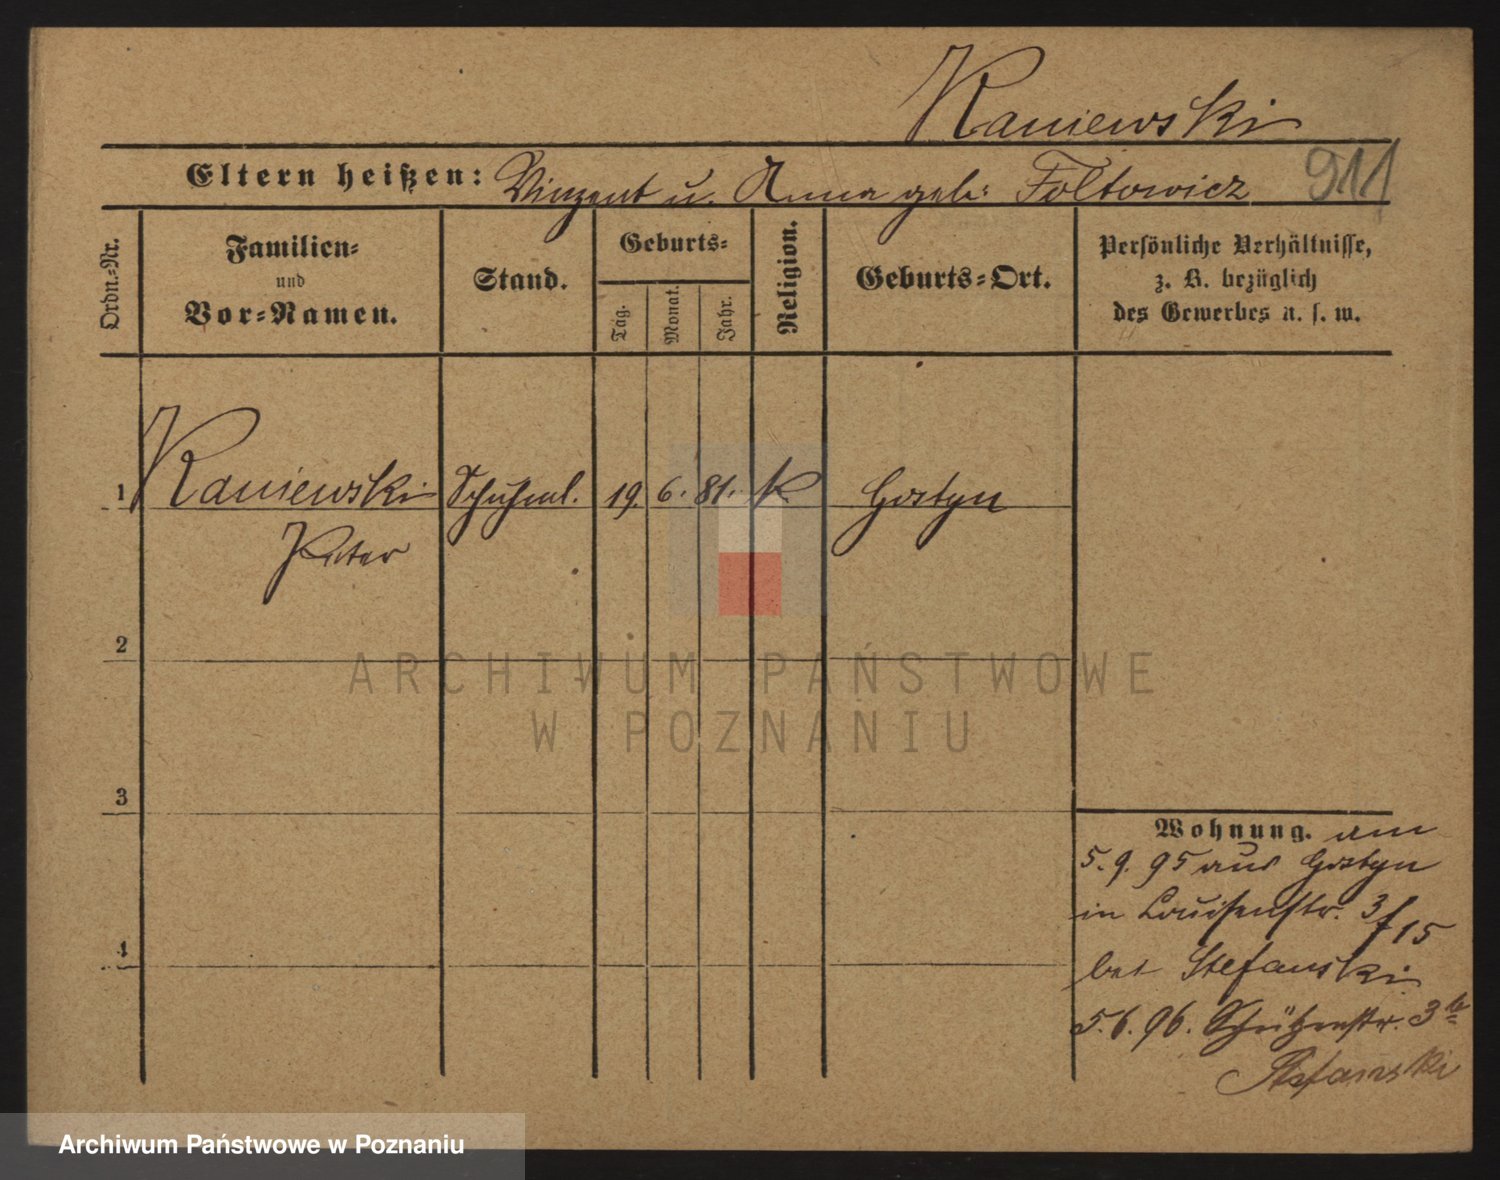 Kaniewski
Eltern heißen: Vinzent u. Anna geb: Foltowicz 911
Ordn.-Nr.
Familien-
und
Vor-Namen.
Stand.
Geburts-
Tag.
Monat.
Jahr.
Religion.
Geburts-Ort.
Persönliche Verhältnisse,
z. B. bezüglich
des Gewerbes u. s. w.
1 Kaniewski Schuhml. 19. 6. 81. K Gostyn
Peter
2
3
4
Wohnung. am
5. 9. 95 aus Gostyn
in Louisenstr. 3f/15
bei Stefanski
5. 6. 96. Schützenstr. 3b
Stefanski
ARCHIWUM PAŃSTWOWE
W POZNANIU
Archiwum Państwowe w Poznaniu